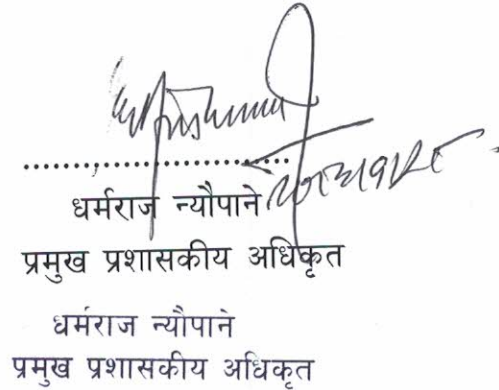 ........................
धर्मराज न्यौपाने
प्रमुख प्रशासकीय अधिकृत
धर्मराज न्यौपाने
प्रमुख प्रशासकीय अधिकृत